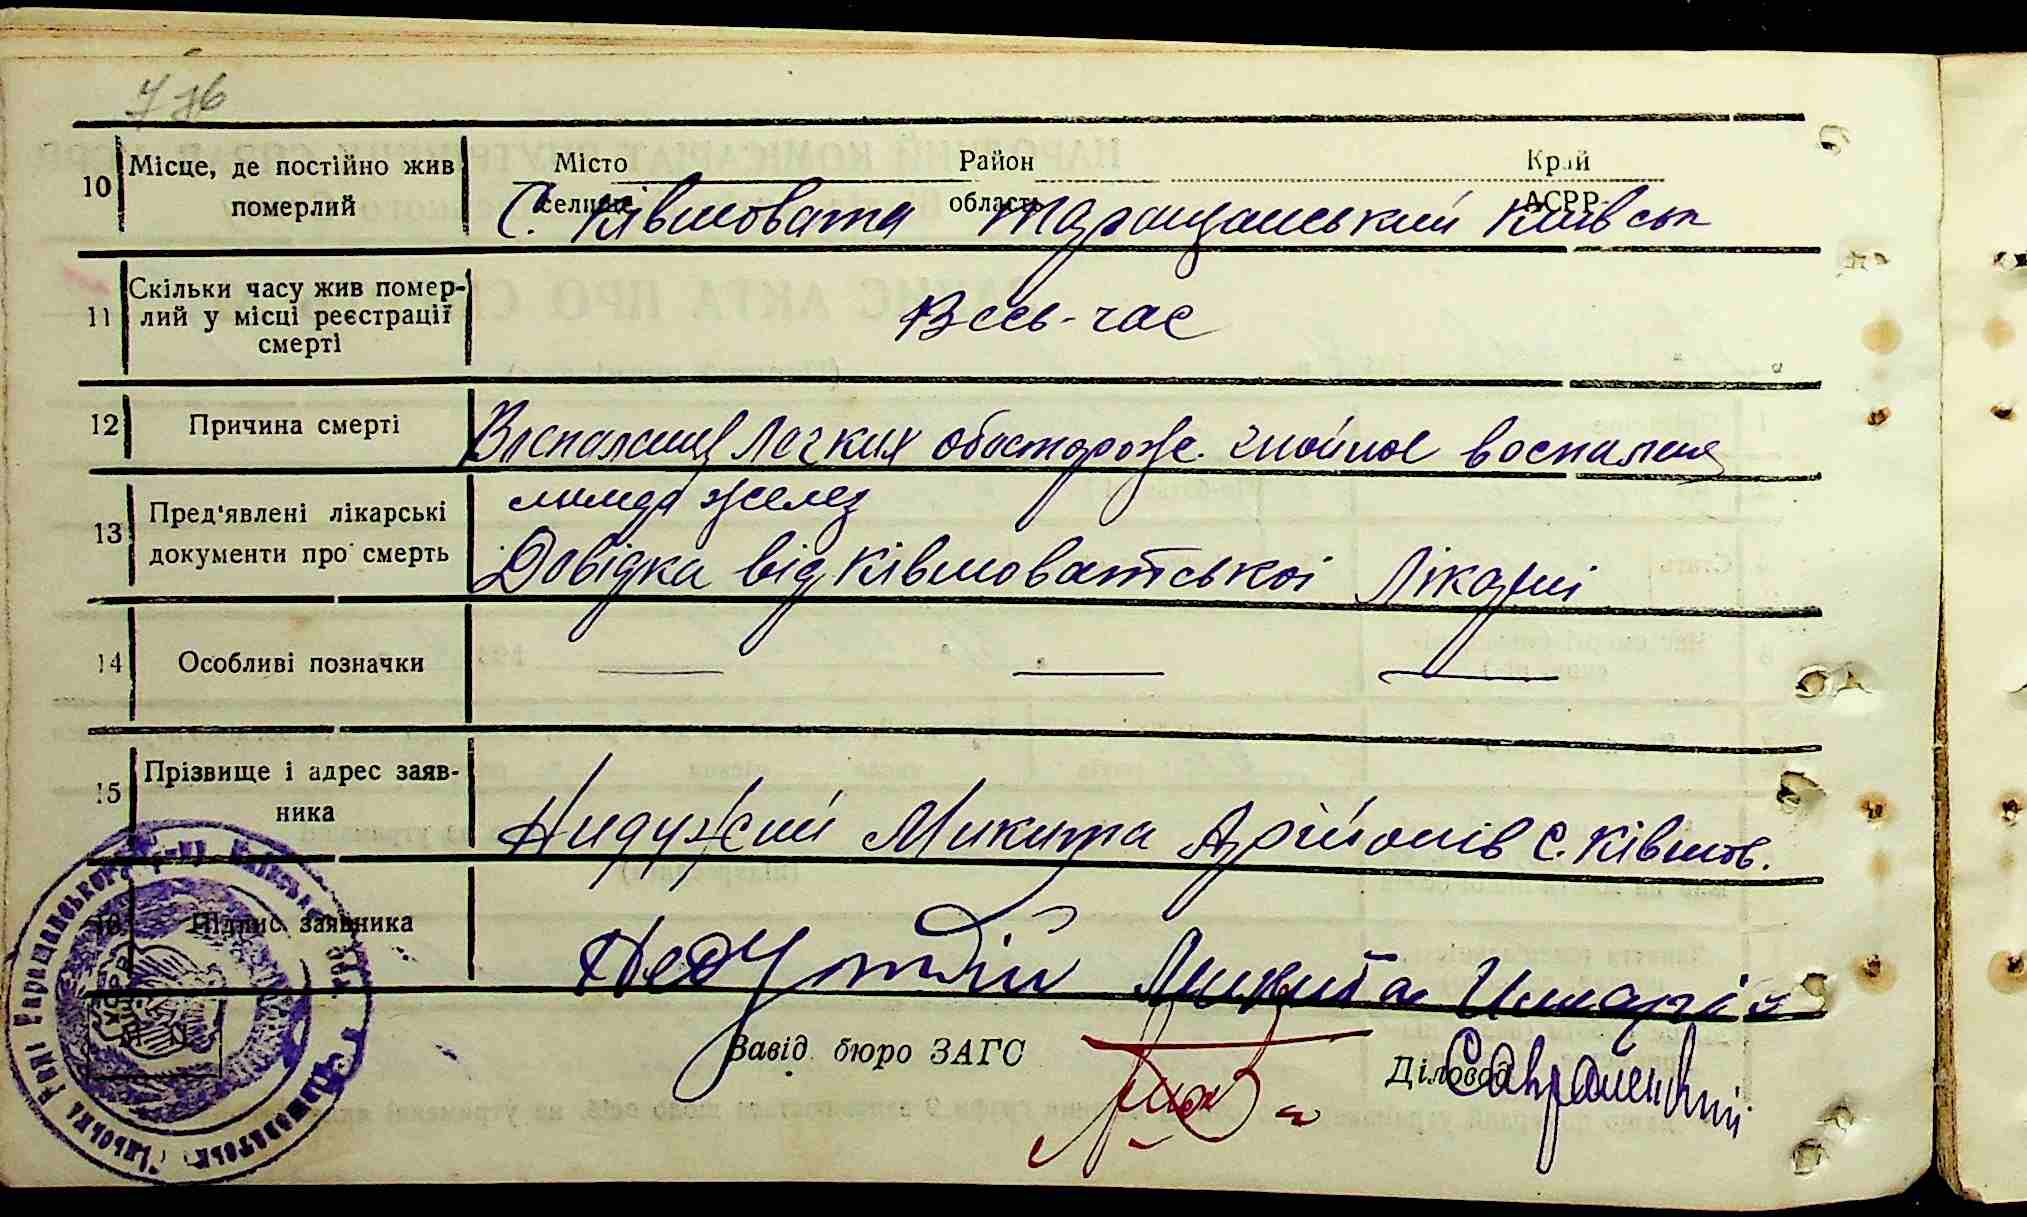 776
10 Місце, де постійно жив померлий
Місто Район Край
селище область АСРР
С. Ківшовата Таращанський Київськ
11 Скільки часу жив померлий у місці реєстрації смерті
Весь-час
12 Причина смерті
Воспаление Легких обостроже. гнойное воспаления
лимфо желез
13 Пред'явлені лікарські документи про смерть
Довідка від Ківшоватської Лікарні
14 Особливі позначки
— — —
15 Прізвище і адрес заявника
Нидужий Микита с. Ківшов.
16 Підпис заявника
Микита
Завід. бюро ЗАГС
Діловод